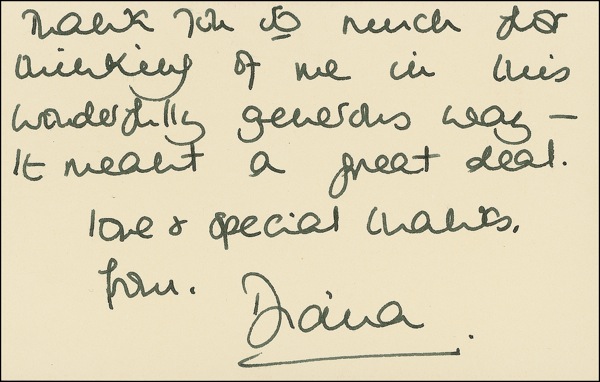 Thank you so much for
thinking of me in this
wonderfully generous way –
It meant a great deal.
love & special thanks,
from.
Diana.